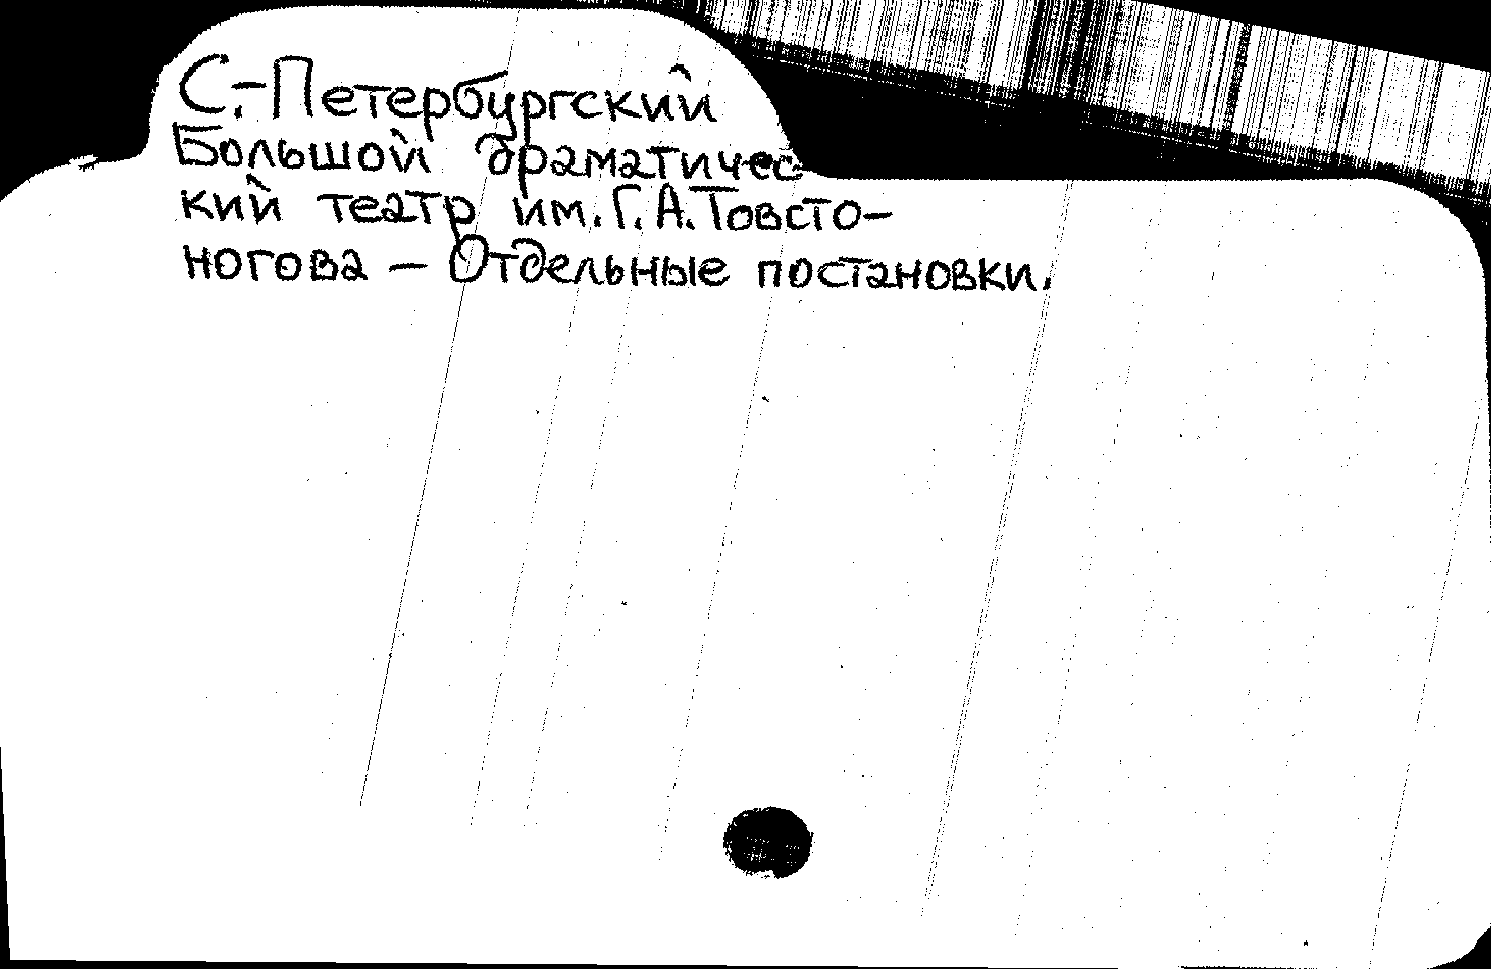 С.-Петербургский
Большой драматичес-
кий театр им. Г. А. Товсто-
ногова — Отдельные постановки.